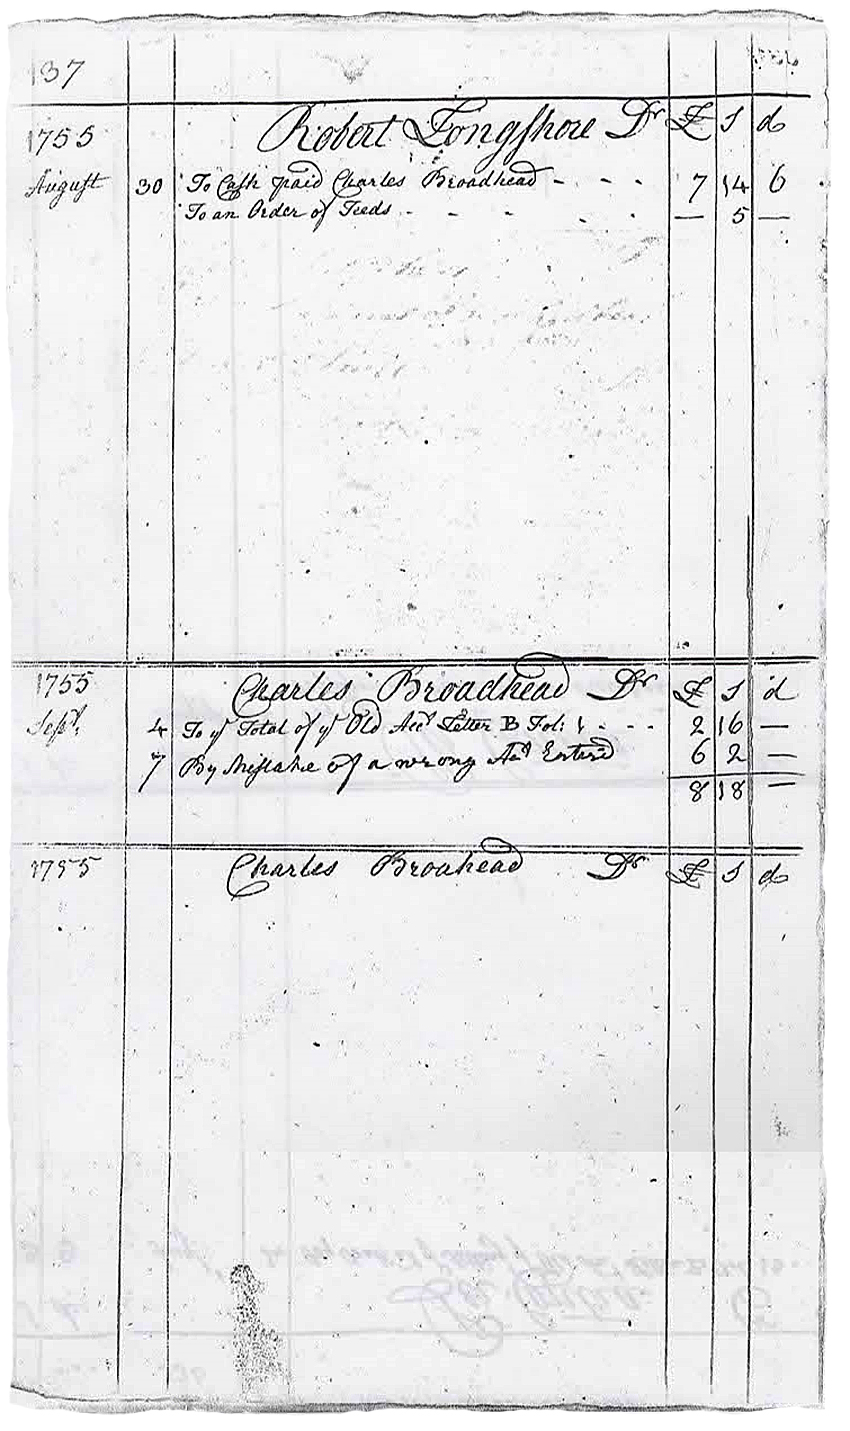 137
1755 Robert Longshore Dr £ S d
August 30 To Cash paid Charles Broadhead - - - - 7 14 6
To an Order of Teeds - - - - - — 5 —
1755 Charles Broadhead Dr £ S d
Sept. 4 To ye Total of ye Old Acct Letter B Fol: 1 - - - 2 16 —
7 By Mistake of a wrong Act Enterd 6 2 —
8 18 —
1755 Charles Broahead Dr £ S d